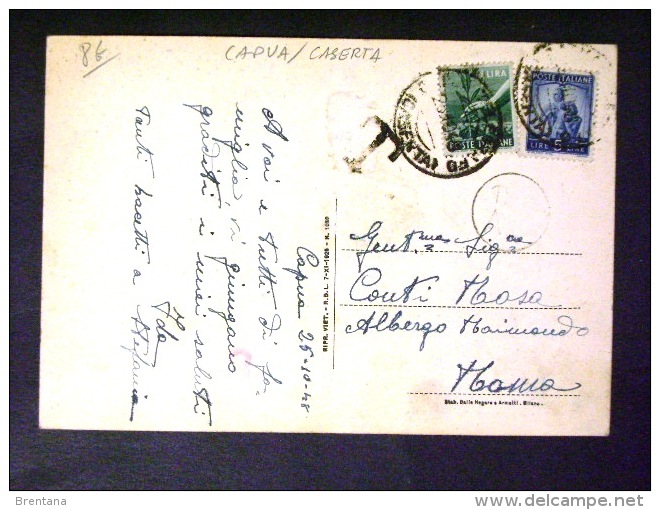 8€
CAPUA/CASERTA
1 LIRA
POSTE ITALIANE
POSTE ITALIANE
LIRE 5 LIRE
T
Capua 25-10-48
A voi e tutti di fa-
miglia, vi giungano
graditi i miei saluti
Ida
Tanti bacetti a Stefania
RIPR. VIET. - R.D.L. 7-XI-1925 - N. 1050
Gent.ma Sig.ra
Conti Rosa
Albergo Raimondo
Roma
Stab. Dalle Nogare e Armetti - Milano.
Brentana
delcampe.net